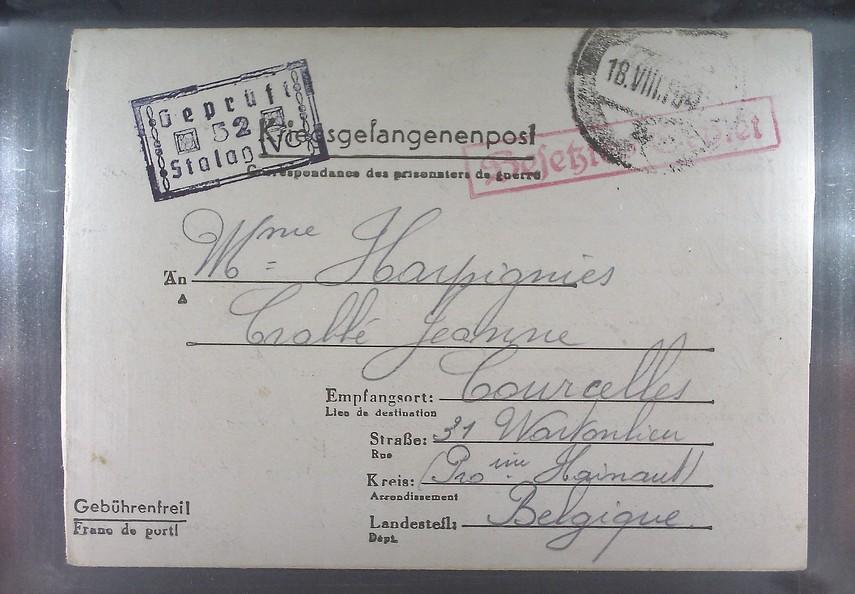 Geprüft
52
Stalag IVC
18.VIII.
Kriegsgefangenenpost
Correspondance des prisonniers de guerre
An Mme Harpignies
A
Crabbé Jeanne
Empfangsort: Courcelles
Lieu de destination
Straße: 31
Rue
Kreis: (Pro Hainaut)
Arrondissement
Gebührenfrei!
Franc de port!
Landesteil: Belgique.
Dépt.